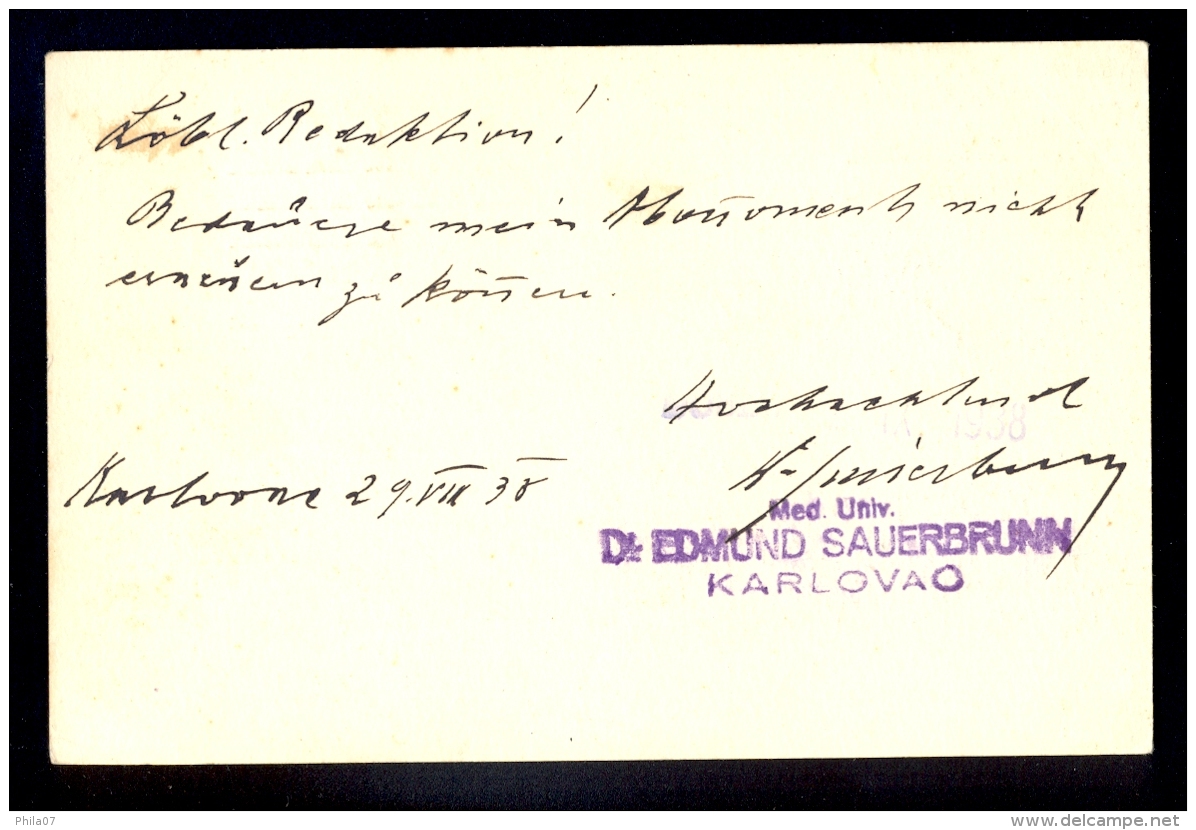 Löbl. Redaktion!
Bedauere mein Abonnement nicht
erneuern zu können.
Hochachtend
1938
Karlovac 29. VIII 38
Dr Sauerbrunn
Med. Univ.
Dr. EDMUND SAUERBRUNN
KARLOVAC
Phila07
delcampe.net